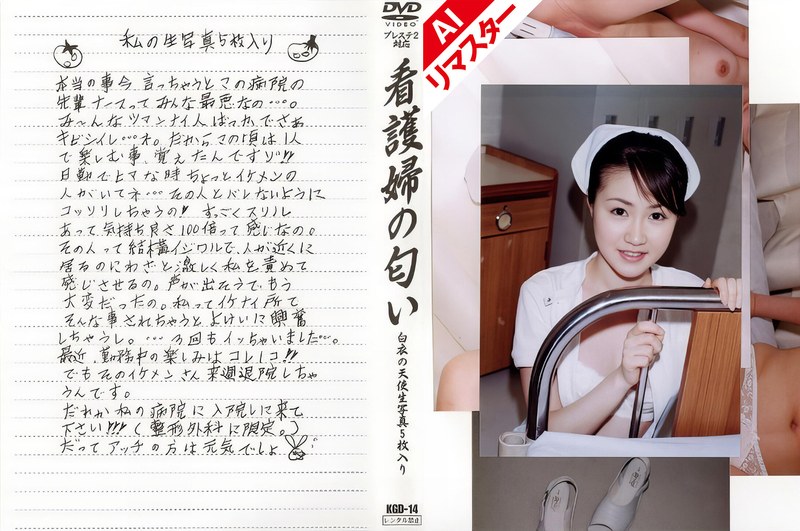 私の生写真5枚入り
本当の事今、言っちゃうとこの病院の
先輩ナースってみんな最悪なの…。
み〜んなツマンナイ人ばっかでさぁ
キビシイし…ネ。だからこの頃は1人
で楽しむ事、覚えたんですゾ!!
日勤でヒマな時ちょっとイケメンの
人がいてネ…その人とバレないように
コッソリしちゃうの!! すっごくスリル
あって気持ち良さ100倍って感じなの。
その人って結構イジワルで、人が近くに
居るのにわざと激しく私を責めて
感じさせるの。声が出そうで、もう
大変だったの。私ってイケナイ所で
そんな事されちゃうとよけいに興奮
しちゃうし。…3回もイッちゃいました…。
最近、勤務中の楽しみはコレ一コ!!
でもそのイケメンさん来週退院しちゃ
うんです。
だれか私の病院に入院しに来て
下さい!!!(整形外科に限定。)
だってアッチの方は元気でしょ
DVD
VIDEO
プレステ2
対応
看護婦の匂い
白衣の天使生写真5枚入り
KGD-14
レンタル禁止
AI
リマスター